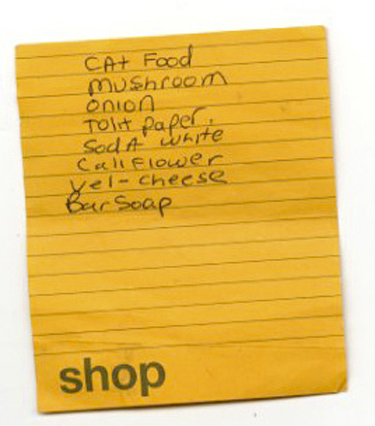 CAt Food
mushroom
onion
Tolit paper.
SodA white
Califlower
vel-cheese
Bar Soap
shop